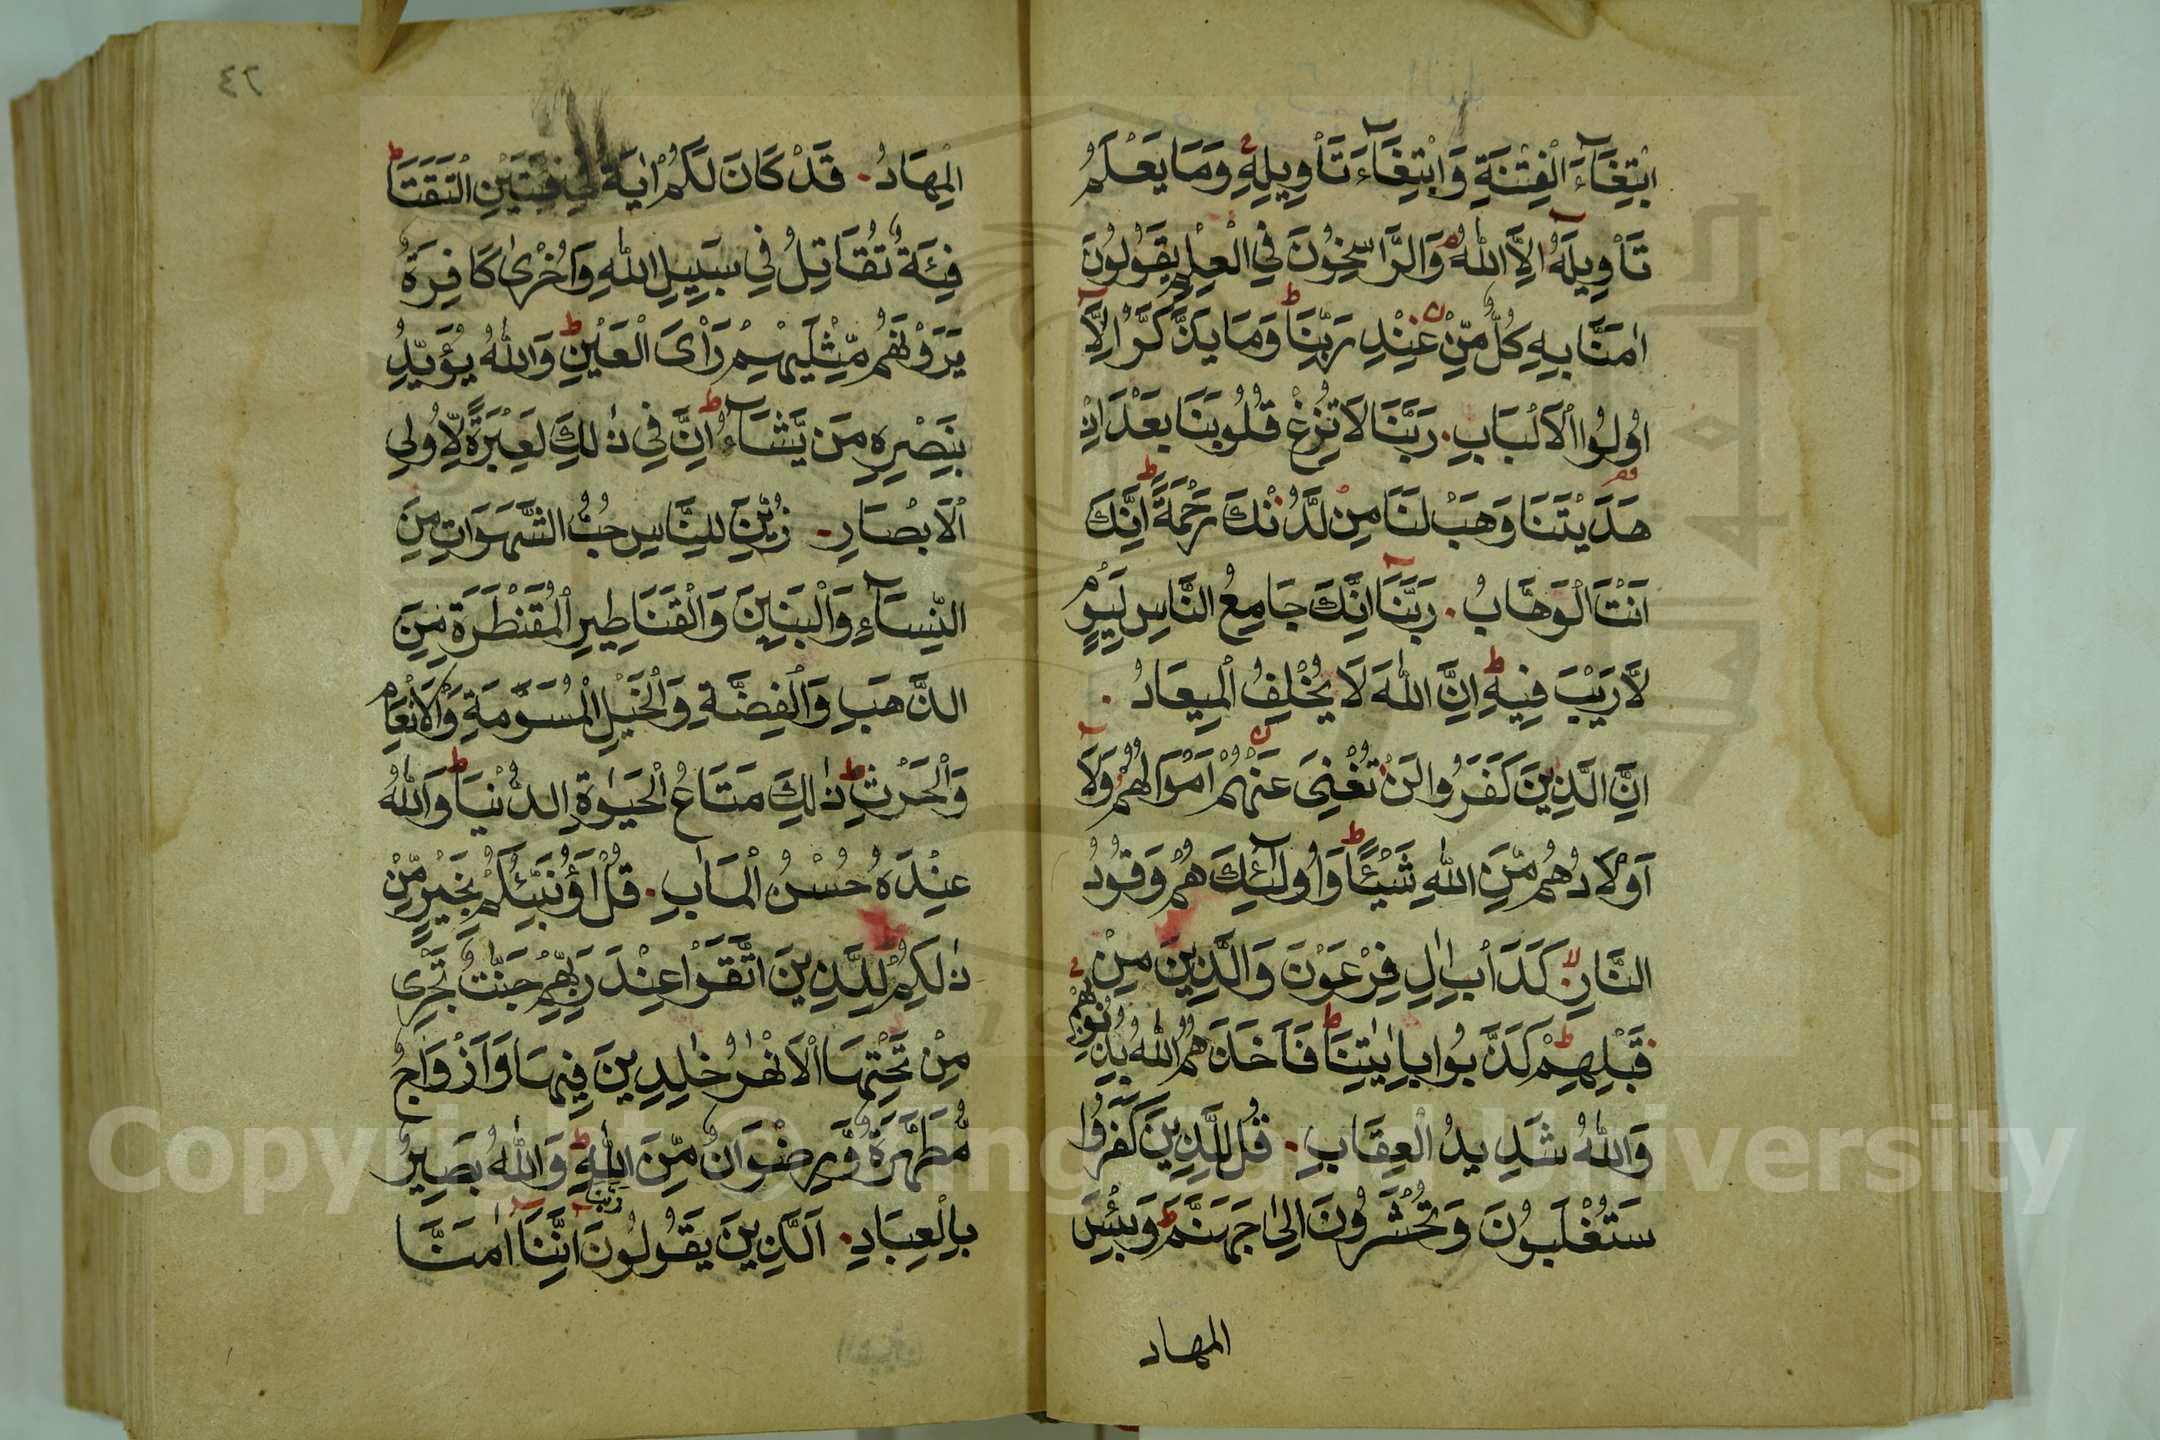 ابْتِغَآءَ الْفِتْنَةِ وَابْتِغَآءَ تَأْوِيلِهِ وَمَا يَعْلَمُ
تَأْوِيلَهُ اِلَّا اللّٰهُ وَالرَّاسِخُونَ فِي الْعِلْمِ يَقُولُونَ
اٰمَنَّا بِهِ كُلٌّ مِّنْ عِنْدِ رَبِّنَا وَمَا يَذَّكَّرُ اِلَّا
اُولُوا الْاَلْبَابِ رَبَّنَا لَا تُزِغْ قُلُوبَنَا بَعْدَ اِذْ
هَدَيْتَنَا وَهَبْ لَنَا مِنْ لَّدُنْكَ رَحْمَةً اِنَّكَ
اَنْتَ الْوَهَّابُ رَبَّنَا اِنَّكَ جَامِعُ النَّاسِ لِيَوْمٍ
لَّا رَيْبَ فِيهِ اِنَّ اللّٰهَ لَا يُخْلِفُ الْمِيعَادُ
اِنَّ الَّذِينَ كَفَرُوا لَنْ تُغْنِيَ عَنْهُمْ اَمْوَالُهُمْ وَلَا
اَوْلَادُهُمْ مِّنَ اللّٰهِ شَيْئًا وَاُولٰٓئِكَ هُمْ وَقُودُ
النَّارِ كَدَأْبِ اٰلِ فِرْعَوْنَ وَالَّذِينَ مِنْ
قَبْلِهِمْ كَذَّبُوا بِاٰيٰتِنَا فَاَخَذَهُمُ اللّٰهُ بِذُنُوبِهِمْ
وَاللّٰهُ شَدِيدُ الْعِقَابِ قُلْ لِّلَّذِينَ كَفَرُوا
سَتُغْلَبُونَ وَتُحْشَرُونَ اِلىٰ جَهَنَّمَ وَبِئْسَ
المهاد
٦٤
الْمِهَادُ قَدْ كَانَ لَكُمْ اٰيَةٌ فِي فِئَتَيْنِ الْتَقَتَا
فِئَةٌ تُقَاتِلُ فِي سَبِيلِ اللّٰهِ وَاُخْرىٰ كَافِرَةٌ
يَرَوْنَهُمْ مِّثْلَيْهِمْ رَأْيَ الْعَيْنِ وَاللّٰهُ يُؤَيِّدُ
بِنَصْرِهِ مَنْ يَّشَآءُ اِنَّ فِي ذٰلِكَ لَعِبْرَةً لِّاُولِي
الْاَبْصَارِ زُيِّنَ لِلنَّاسِ حُبُّ الشَّهَوَاتِ مِنَ
النِّسَآءِ وَالْبَنِينَ وَالْقَنَاطِيرِ الْمُقَنْطَرَةِ مِنَ
الذَّهَبِ وَالْفِضَّةِ وَالْخَيْلِ الْمُسَوَّمَةِ وَالْاَنْعَامِ
وَالْحَرْثِ ذٰلِكَ مَتَاعُ الْحَيٰوةِ الدُّنْيَا وَاللّٰهُ
عِنْدَهُ حُسْنُ الْمَاٰبِ قُلْ اَؤُنَبِّئُكُمْ بِخَيْرٍ مِّنْ
ذٰلِكُمْ لِلَّذِينَ اتَّقَوْا عِنْدَ رَبِّهِمْ جَنّٰتٌ تَجْرِي
مِنْ تَحْتِهَا الْاَنْهٰرُ خٰلِدِينَ فِيهَا وَاَزْوَاجٌ
مُّطَهَّرَةٌ وَّرِضْوَانٌ مِّنَ اللّٰهِ وَاللّٰهُ بَصِيرٌ
بِالْعِبَادِ اَلَّذِينَ يَقُولُونَ رَبَّنَا اِنَّنَا اٰمَنَّا
Copyright © King Saud University